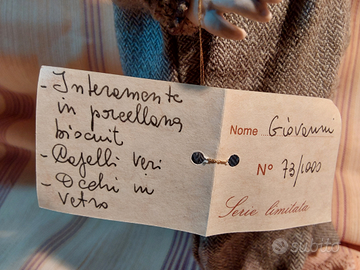 - Interamente
in porcellana
biscuit
- Capelli veri
- Occhi in
vetro
Nome Giovanni
N° 73/1000
Serie limitata
subito